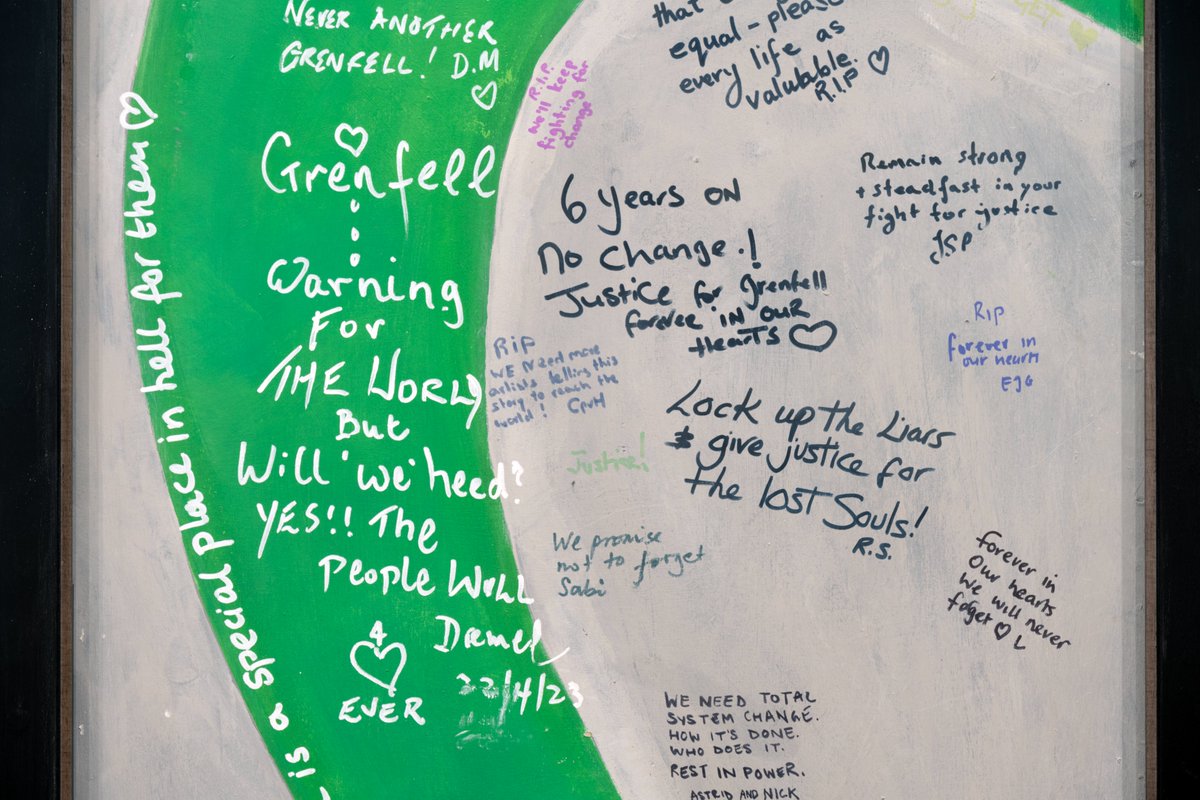 NEVER ANOTHER
GRENFELL! D.M
Grenfell
Warning
For
THE WORLD
But
Will 'we' heed?
YES!! The
People Will
4
EVER
22/4/23
is a special place in hell for them
R.I.P.
we'll keep
fighting for
change
that
equal - please
every life as
valuable.
R.I.P
6 years on
No change.!
Justice for grenfell
forever in our
hearts
Remain strong
+ steadfast in your
fight for justice
RIP
forever in
our hearts
EJG
RIP
WE NEED MORE
artists telling this
story to reach the
world!
Justice!
Lock up the Liars
& give justice for
the lost Souls!
R.S.
We promise
not to forget
Sabi
forever in
Our hearts
We will never
foget L
WE NEED TOTAL
SYSTEM CHANGE.
HOW IT'S DONE.
WHO DOES IT.
REST IN POWER.
ASTRID AND NICK